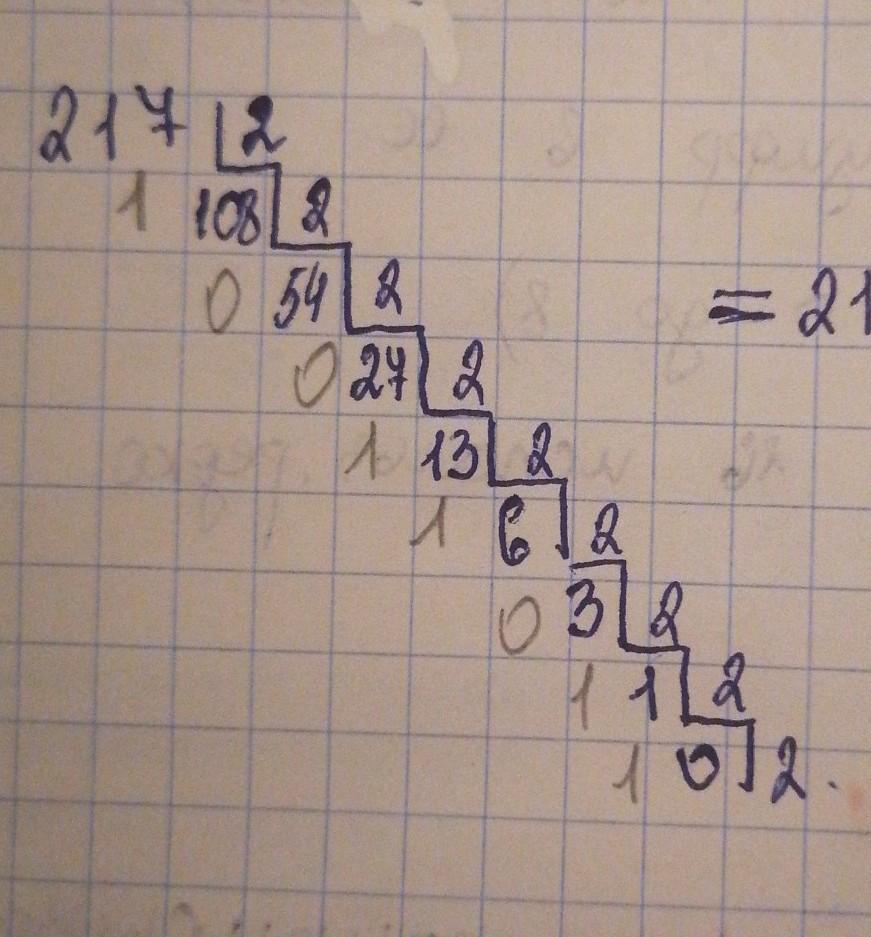 217 2
1 108 2
0 54 2
= 21
0 27 2
1 13 2
1 6 2
0 3 2
1 1 2
1 0 2.